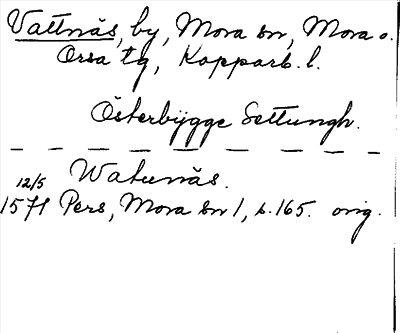 Vattnäs, by, Mora sn, Mora o.
Orsa tg, Kopparb. l.
Österbygge Settungh.
Watunäs.
12/5
1571 Pers, Mora sn 1, s. 165. orig.